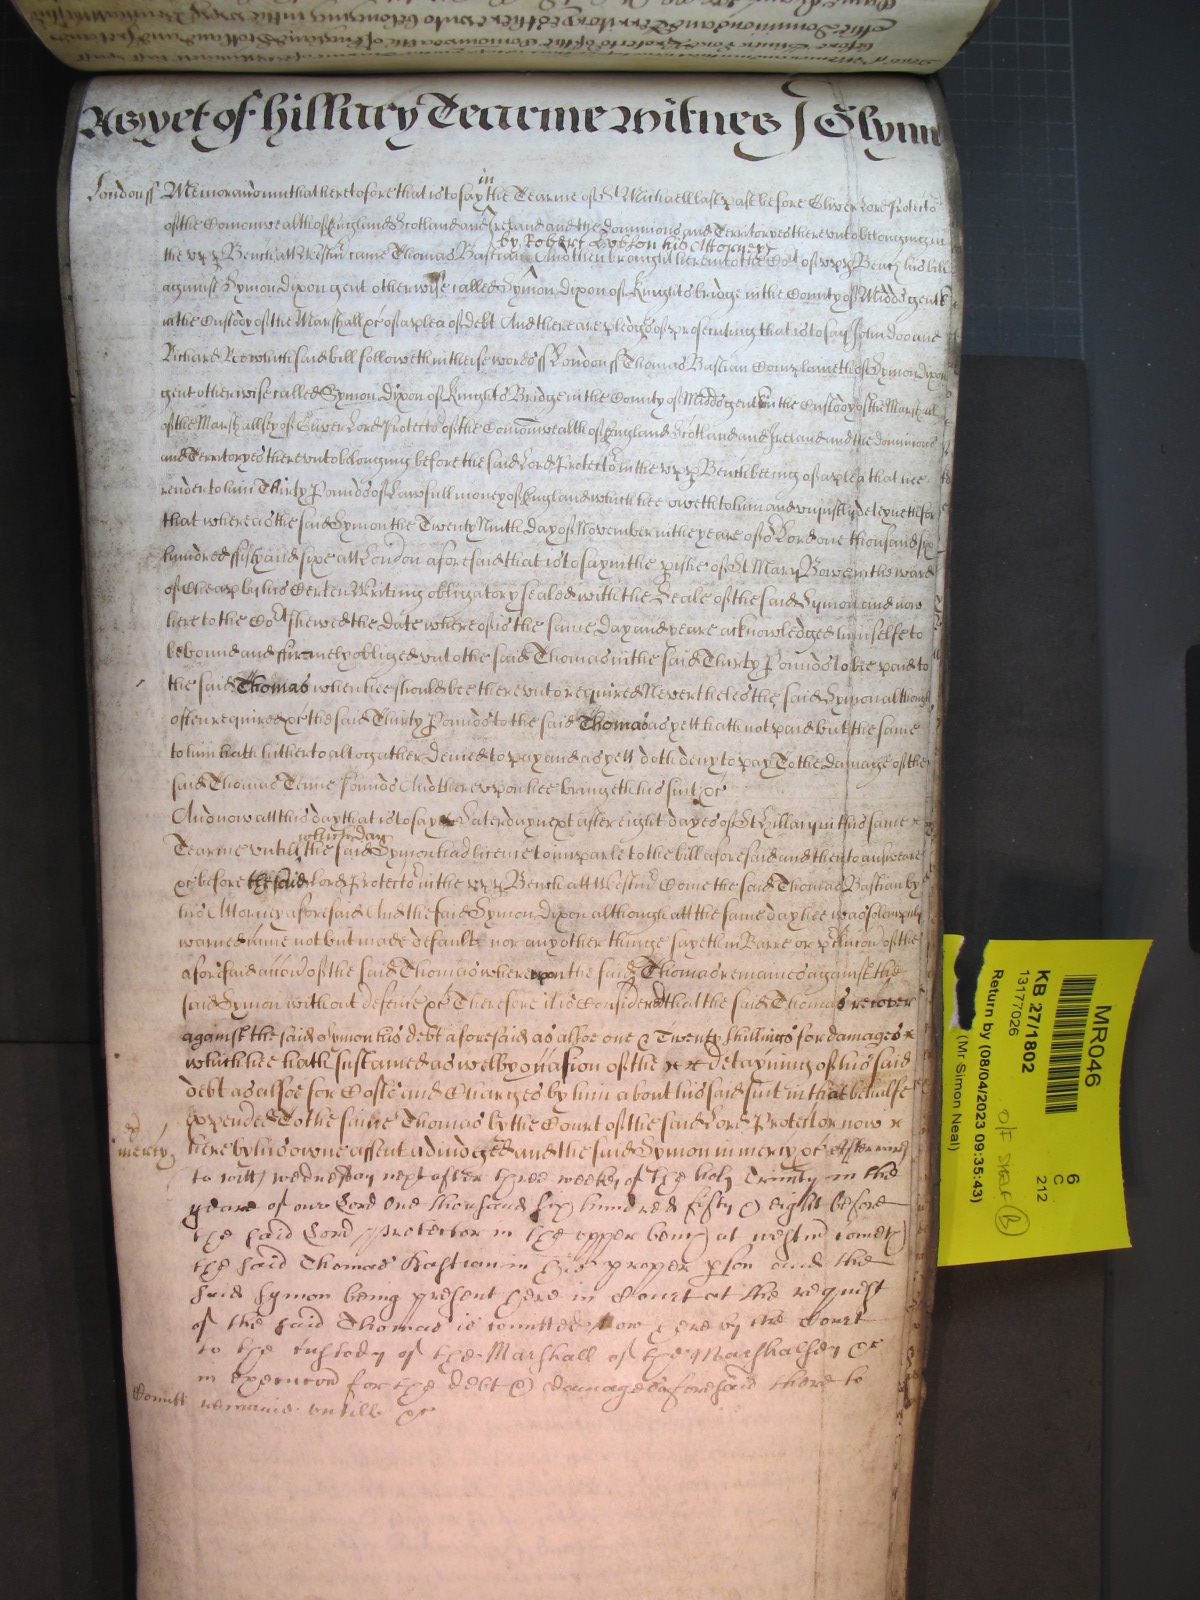 As yet of Hillary Tearme Witnes J Glynn
London ss Memorandum that heretofore that is to say in the Tearme of St Michaell last past before Oliver Lord Protector
of the Comonwealth of England Scotland and Ireland and the dominions and Territoryes thereunto belonging in
by Robert his Attorney
the upp Bench att Westmr came Thomas Bastian And then brought here into the Cort of upp Bench his bill
against Symon Dixon gent otherwise called Symon Dixon of Knightsbridge in the County of Midds gent
in the Custody of the Marshall &c of a plea of Debt And there are pledges of prosecuting that is to say John Doo and
Richard Roe which said bill followeth in theise words ss London ss Thomas Bastian Complaineth of Symon Dixon
gent otherwise called Symon Dixon of Knights Bridge in the County of Midds gent in the Custody of the Marshall
of the Marshallsey of Oliver Lord Protector of the Comonwealth of England Scotland and Ireland and the dominions
and Territoryes thereunto belonging before the said Lord Protector in the upp Bench being of a plea that hee
render to him Thirty Pounds of Lawfull money of England which hee oweth to him and unjustly deteyneth for
that whereas the said Symon the Twenty Ninth day of November in the yeare of or Lord one thousand six
hundred fifty and sixe att London aforesaid that is to say in the pishe of St Mary Bowe in the ward
of Cheap by his Certen Writing obligatory sealed with the Seale of the said Symon and now
here to the Cort shewed the Date whereof is the same day and yeare acknowledged himselfe to
be bound and firmely obliged unto the said Thomas in the said Thirty Pounds to bee paid to
the said Thomas when hee should bee thereunto required Neverthelesse the said Symon although
often required &c the said Thirty Pounds to the said Thomas as yett hath not paid but the same
to him hath hitherto altogather Denied to pay and as yett doth deny to pay To the Damage of the
said Thomas Tenne Pounds And thereupon hee bringeth his suit &c
And now att this day that is to say Saterday next after eight dayes of St Hillary in this same
which day
Tearme untill the said Symon had licence to imparle to the bill aforesaid and then to answeare
&c before the said Lord Protector in the upp Bench att Westmr Come the said Thomas Bastian by
his Attorney aforesaid And the said Symon Dixon although att the same day hee was solempnly
warned came not but made default nor any other thinge sayeth in Barre or of the
aforesaid accon of the said Thomas whereupon the said Thomas remaines against the
said Symon without defence &c Therefore it is Considered that the said Thomas recover
against the said Symon his debt aforesaid as alsoe one & Twenty shillings for damages
which hee hath sustained as well by occasion of the detayning of his said
debt as alsoe for Costs and Charges by him about his said suit in that behalfe
expended To the same Thomas by the Court of the said Lord Protector now
mercy here by his owne assent adiudged and the said Symon in mercy &c Afterward
to witt wednesday next after three weekes of the holy Trinity in the
yeare of our Lord One thousand six hundred fifty & eight before
the said Lord Protector in the upper bench at westmr cometh
the said Thomas Bastian in his proper pson and the
said Symon being present here in Court at the request
of the said Thomas is comitted now here by the Court
to the custody of the Marshall of the Marshalsey &c
in execucon for the debt & damages aforesaid there to
Comitt remaine untill &c
MR046
6
C
212
KB 27/1802
13177026
Return by (08/04/2023 09:35:43)
(Mr Simon Neal)
O/S SHELF B